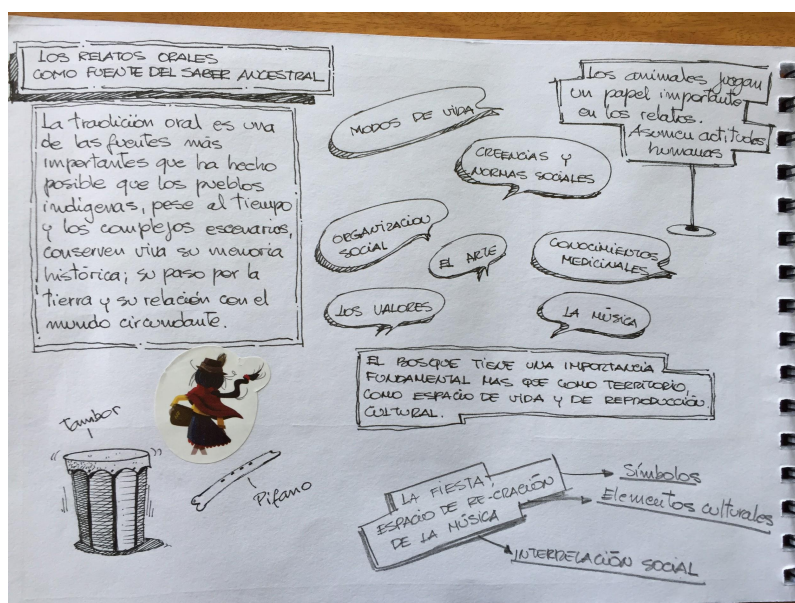 LOS RELATOS ORALES
COMO FUENTE DEL SABER ANCESTRAL
La tradición oral es una
de las fuentes más
importantes que ha hecho
posible que los pueblos
indígenas, pese al tiempo
y los complejos escenarios,
conserven viva su memoria
histórica; su paso por la
tierra y su relación con el
mundo circundante.
Tambor
Pifano
MODOS DE VIDA
CREENCIAS Y
NORMAS SOCIALES
ORGANIZACION
SOCIAL
EL ARTE
CONOCIMIENTOS
MEDICINALES
LOS VALORES
LA MÚSICA
Los animales juegan
un papel importante
en los relatos.
Asumen actitudes
humanas
EL BOSQUE TIENE UNA IMPORTANCIA
FUNDAMENTAL MAS QUE COMO TERRITORIO,
COMO ESPACIO DE VIDA Y DE REPRODUCCIÓN
CULTURAL.
LA FIESTA,
ESPACIO DE RE-CRACIÓN
DE LA MÚSICA
Símbolos
Elementos culturales
INTERRELACIÓN SOCIAL